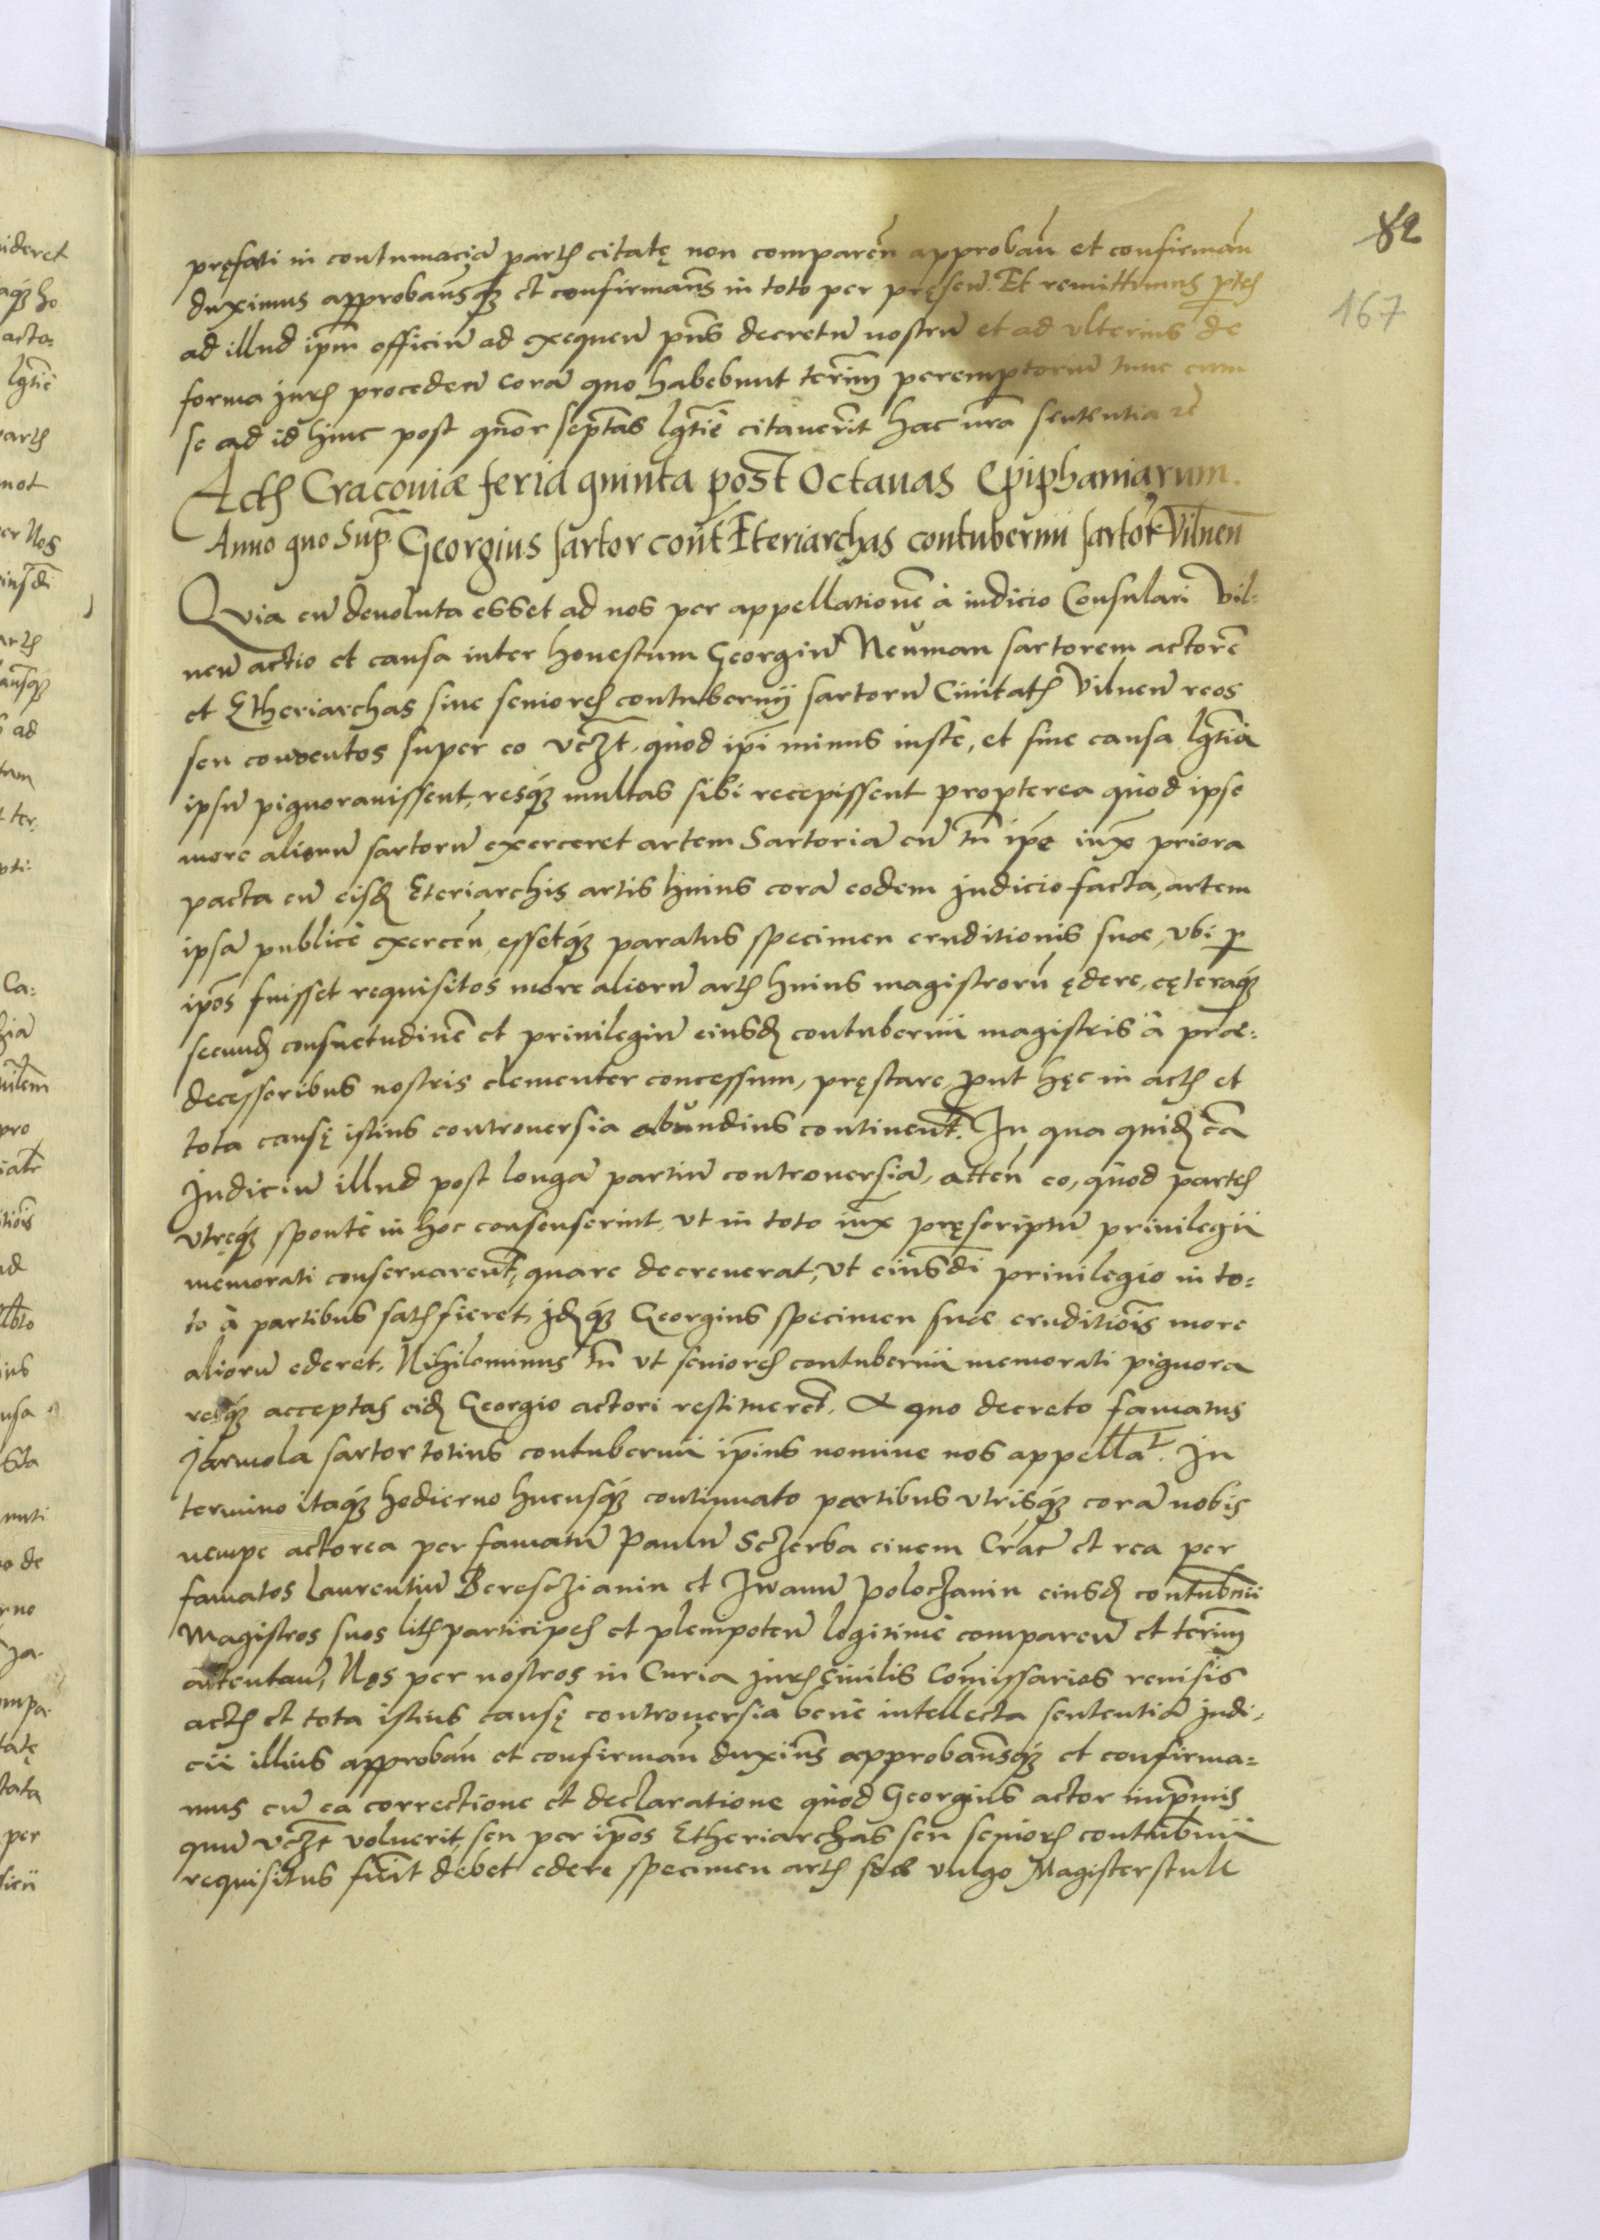 82
167
pręfati in contumaciã partis citatę non comparen̄ approban̄ et confirman̄
duximus approbamusq; et confirmam̃s in toto per pręsen̄. Et remittimus ptes
ad illud ipm̃ officiũ ad exequen̄ pñs decretũ nostrũ et ad ulterius de
forma juris proceden̄ corã quo habebunt termĩn peremptoriũ tunc cum
se ad id hinc post quãor septĩas lg̃time citaverĩt hac nrã sententia
Actũ Cracoviæ feria quinta post Octavas Epiphaniarum.
Anno quo Supr̃ Georgius sartor con̄t Eteriarchas contubernii sartor̃ Vilnen̄
Quia cũ devoluta esset ad nos per appellationẽ à iudicio Consulari Vil-
nen̄ actio et causa inter honestum Georgiũ Neuman sartorem actorẽ
et Etheriarchas sive seniores contubernij sartorũ Civitatis Vilnen̄ reos
seu conventos super eo vczt. quod ipĩ minus iustè, et sine causa lg̃tima
ipsũ pignoravissent, resq; multas sibi recepissent propterea quòd ipse
more aliorũ sartorũ exerceret artem Sartoriã cũ tñ ipse iuxᵃ priora
pacta cũ eisd̃ Eteriarchis artis huius corã eodem judicio facta, artem
ipsã publicè exercen̄, essetq; paratus specimen eruditionis suæ, ubi p
ipõs fuisset requisitos more aliorũ artis huius magistrorũ ędere, cęteraq;
secund̃ consuetudinẽ et privilegiũ eiusd̃ contubernii magistris à præ-
decessoribus nostris clementer concessum, pręstare, prout hęc in actis et
tota causę istius controversia abundius continent̃. In qua quid̃ cã
Judiciũ illud post longã partiũ controversiã, atten̄ eo, quòd partes
utręq; spontè in hoc consenserint, ut in toto iuxᵃ pręscriptũ privilegii
memorati conservarent̃, quare decreverat, ut eiusdĩ privilegio in to-
to à partibus satisfieret, jd̃q; Georgius specimen suæ eruditiõis more
aliorũ ederet. Nihilominus tñ ut seniores contubernii memorati pignora
resq; acceptas eid̃ Georgio actori restituerẽt. A quo decreto famatus
Jarmola sartor totius contubernii ipĩus nomine nos appellaᵗ. In
termino itaq; hodierno hucusq; continuato partibus utrisq; corã nobis
nempe actorea per famatũ Paulũ Sczerba civem Crac̃ et rea per
famatos Laurentiũ Beresczianin et Jwanũ Poloczanin eiusd̃ contubñii
Magistros suos litis participes et plenipoten̄ legitimè comparen̄ et termĩn
attentan̄, Nos per nostros in Curia juris civilis Com̃issarios revisis
actis et tota istius causę controversia benè intellecta sententiã judi-
cii illius approban̄ et confirman̄ duxim̃s approbam̃sq; et confirma-
mus cũ ea correctione et declaratione quòd Georgius actor inprĩmis
quũ vczt voluerit, seu per ipõs Etheriarchas seu seniores contubñii
requisitus fuẽit debet edere specimen artis suæ vulgo Magisterstuk